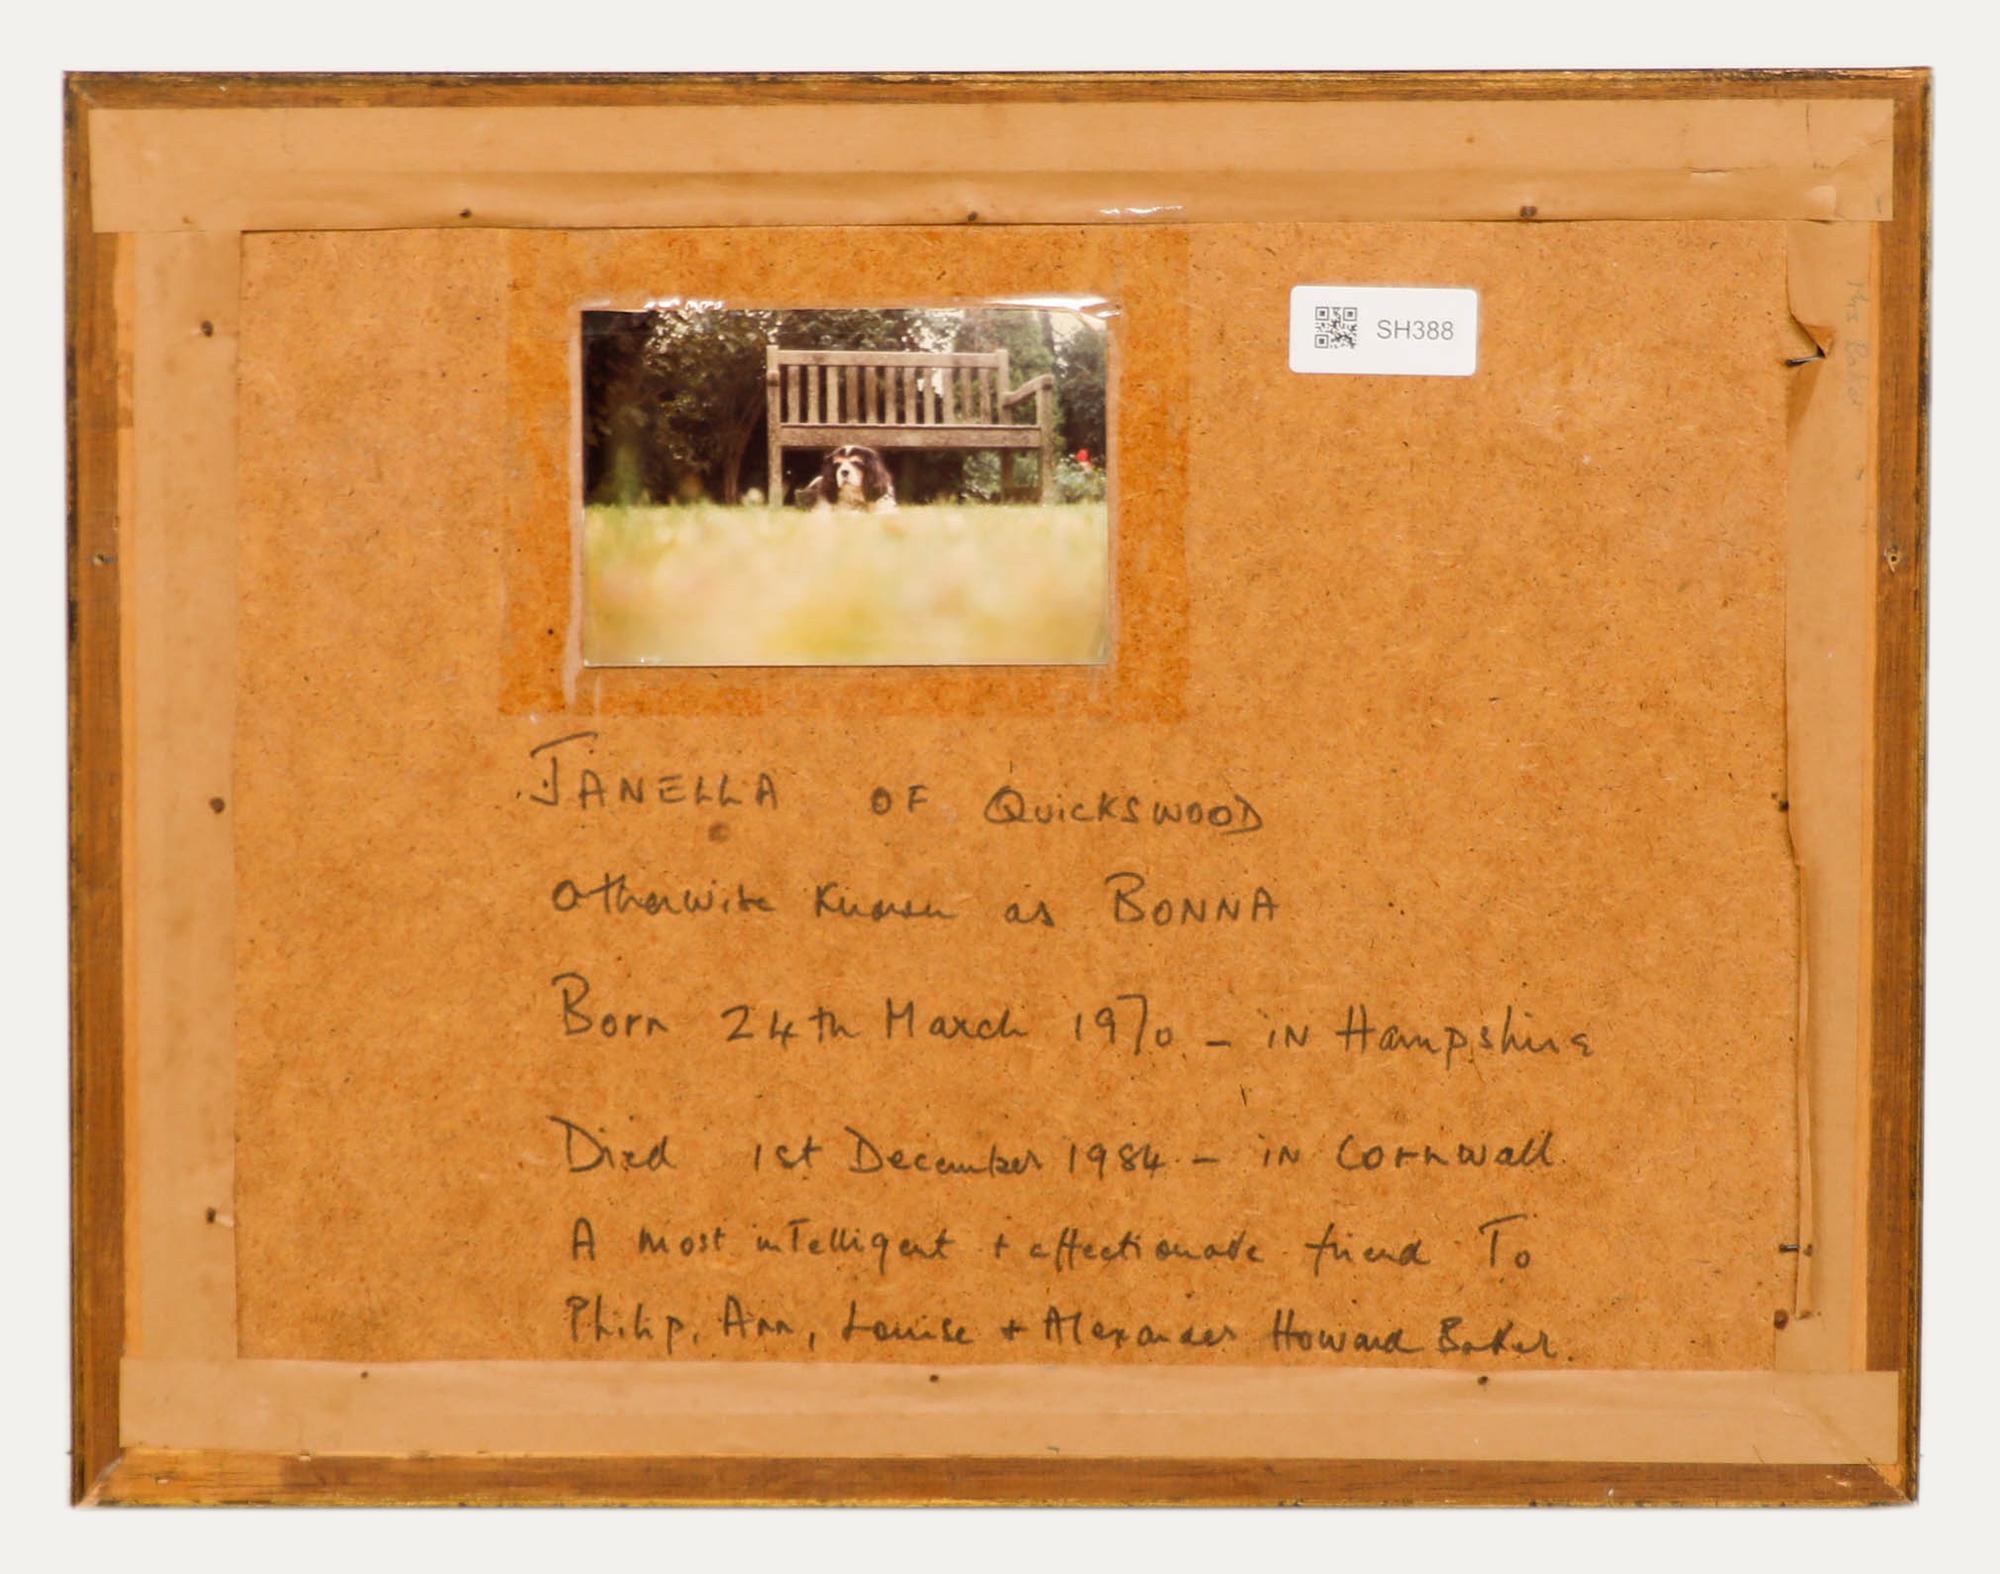 SH388
JANELLA OF QUICKSWOOD
otherwise known as BONNA
Born 24th March 1970 - in Hampshire
Died 1st December 1984 - in Cornwall.
A most intelligent + affectionate friend To
Philip, Ann, Louise + Alexander Howard Baker.
Mrs Baker